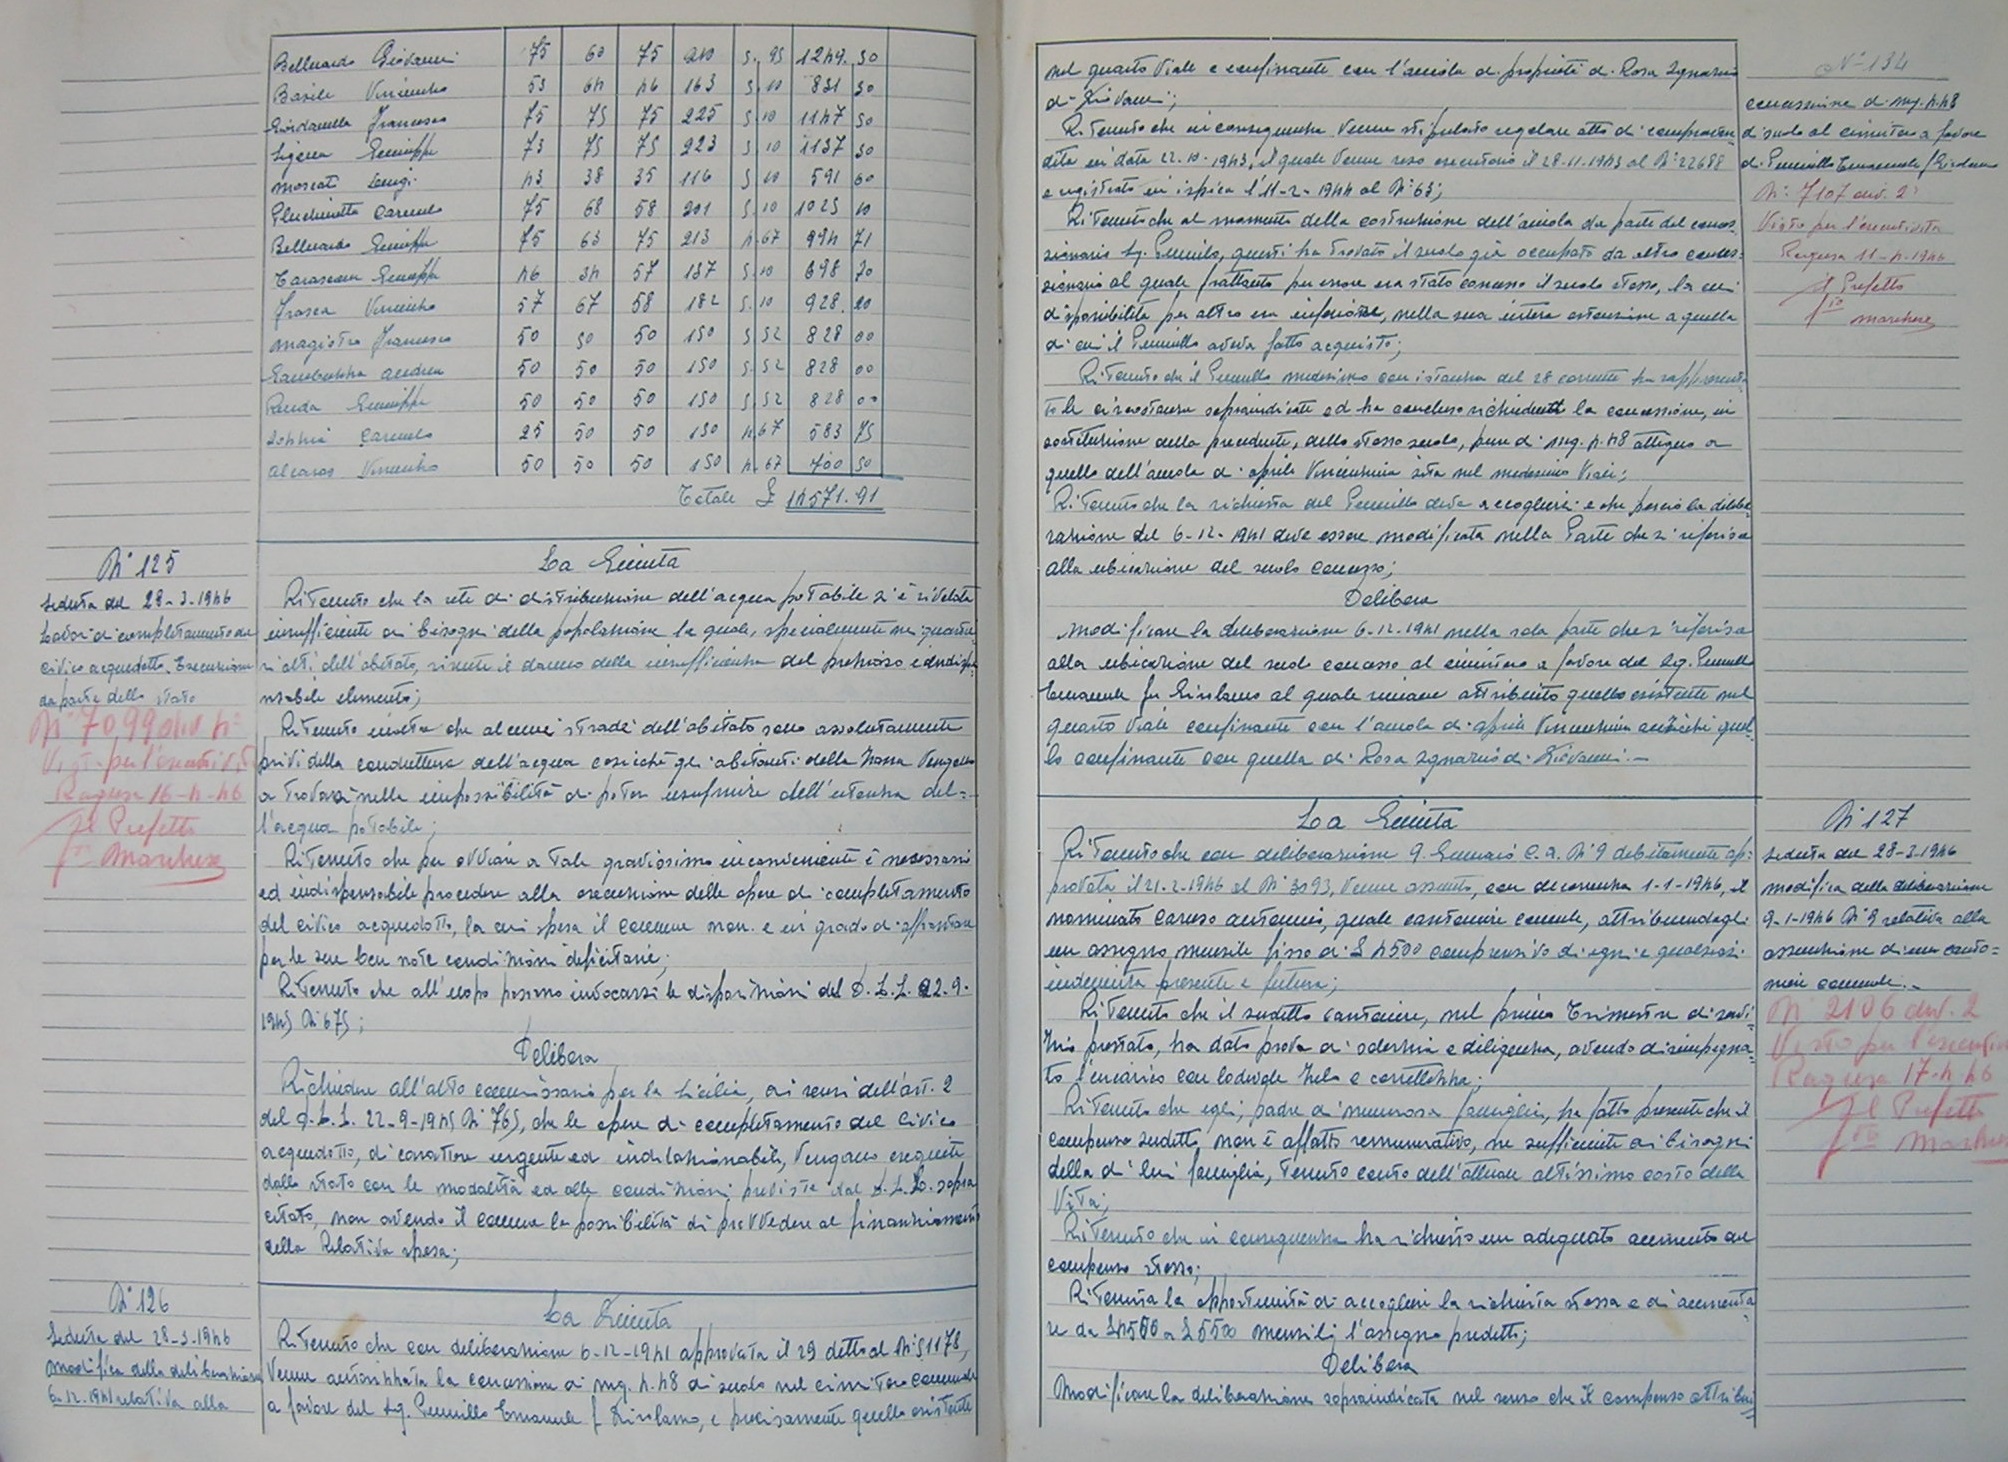 Belluardo Giovanni 75 60 75 210 5. 95 1249. 50
Basile Vincenzo 53 64 46 163 5 10 831 30
Giordanella Francesco 75 75 75 225 5 10 1147 50
Ligena Giuseppe 73 75 75 223 5 10 1137 30
Moscati Luigi 43 38 35 116 5 10 591 60
Pluchinotta Carmelo 75 68 58 201 5. 10 1025 10
Belluardo Giuseppe 75 63 75 213 4. 67 994 71
Tarascon Giuseppe 46 34 57 137 5. 10 698 70
Frasca Vincenzo 57 67 58 182 5. 10 928. 20
Magistro Francesco 50 50 50 150 5 52 828 00
Andrea 50 50 50 150 5. 52 828 00
Renda Giuseppe 50 50 50 150 5 52 828 00
Carmelo 25 50 50 130 4. 67 583 75
Alcaras Vincenzo 50 50 50 150 4. 67 700 50
Totale £ 14571. 91
N° 125
Seduta del 28-3-1946
Lavori di completamento del
civico acquedotto. Esecuzione
da parte dello stato
N° 7099 div 4ª
Visto per l'esecutività
Ragusa 16-4-46
Il Prefetto
fto Marchese
La Giunta
Ritenuto che la rete di distribuzione dell'acqua potabile si è rivelata
insufficiente ai bisogni della popolazione la quale, specialmente nei quartie
ri alti dell'abitato, risente il danno della insufficienza del prezioso e indispe
nsabile elemento;
Ritenuto inoltre che alcune strade dell'abitato sono assolutamente
privi della conduttura dell'acqua cosichè gli abitanti della zona vengono
a trovarsi nella impossibilità di poter usufruire dell'utenza del-
l'acqua potabile;
Ritenuto che per ovviare a tale gravissimo inconveniente è necessario
ed indispensabile procedere alla esecuzione delle opere di completamento
del civico acquedotto, la cui spesa il comune non è in grado di affrontare
per le sue ben note condizioni deficitarie;
Ritenuto che all'uopo possono invocarsi le disposizioni del D.L.L. 22.9.
1945 N° 675;
Delibera
Richiedere all'alto commissario per la Sicilia, ai sensi dell'art. 2
del D.L.L. 22-9-1945 N° 765, che le opere di completamento del Civico
acquedotto, di carattere urgente ed indilazionabili, vengano eseguite
dallo stato con le modalità ed alle condizioni previste dal D.L.L. sopra
citato, non avendo il comune la possibilità di provvedere al finanziamento
della relativa spesa;
N° 126
Seduta del 28-3-1946
Modifica della deliberazione
6-12-1941 relativa alla
La Giunta
Ritenuto che con deliberazione 6-12-1941 approvata il 29 detto al N° 51178,
venne autorizzata la concessione di mq. 4.48 di suolo nel cimitero comunale
a favore del sig. Emanuele f Girolamo, e precisamente quello esistente
nel quarto viale e confinante con l'aiuola di proprietà di Rosa Ignazio
di Giovanni;
Ritenuto che in conseguenza venne stipulato regolare atto di compraven
dita in data 22-10-1943, il quale venne reso esecutorio il 28-11-1943 al N° 22688
e registrato in Ispica l'11-2-1944 al N° 63;
Ritenuto che al momento della costruzione dell'aiuola da parte del conces
sionario sig. questi ha trovato il suolo già occupato da altro conces-
sionario al quale, frattanto per errore era stato concesso il suolo stesso, la cui
disponibilità per altro era inferiore, nella sua intera estensione a quella
di cui il aveva fatto acquisto;
Ritenuto che il medesimo con istanza del 28 corrente ha rappresenta
to le circostanze sopraindicate ed ha concluso richiedendo la concessione, in
sostituzione della precedente, dello stesso suolo, pure di mq. 4.48 attiguo a
quello dell'aiuola di Aprile Vincenzina sita nel medesimo viale;
Ritenuto che la richiesta del deve accogliersi e che perciò la delibe
razione del 6-12-1941 deve essere modificata nella parte che si riferisce
alla ubicazione del suolo concesso;
Delibera
Modificare la deliberazione 6-12-1941 nella sola parte che si riferisce
alla ubicazione del suolo concesso al cimitero a favore del sig.
Emanuele fu Girolamo al quale rimane attribuito quello esistente nel
quarto viale confinante con l'aiuola di Aprile Vincenzina anzichè quel
lo confinante con quella di Rosa Ignazio di Giovanni.-
N° 134
concessione di mq. 4.48
di suolo al cimitero a favore
di Emanuele f Girolamo
N° 7107 div. 2ª
Visto per l'esecutività
Ragusa 11-4-1946
Il Prefetto
fto Marchese
La Giunta
Ritenuto che con deliberazione 9 Gennaio c.a. N° 9 debitamente ap-
provata il 21-2-1946 al N° 3093, venne assunto, con decorrenza 1-1-1946, il
nominato Caruso Antonio, quale cantoniere comunale, attribuendogli
un assegno mensile fisso di £ 4500 comprensivo di ogni e qualsiasi
indennità presente e futura;
Ritenuto che il sudetto cantoniere, nel primo trimestre di servi-
zio prestato, ha dato prova di solerzia e diligenza, avendo disimpegna-
to l'incarico con lodevole zelo e correttezza;
Ritenuto che egli, padre di numerosa famiglia, ha fatto presente che il
compenso sudetto non è affatto remunerativo, ne sufficiente ai bisogni
della di lui famiglia, tenuto conto dell'attuale altissimo costo della
vita;
Ritenuto che in conseguenza ha richiesto un adeguato aumento del
compenso stesso;
Ritenuta la opportunità di accogliere la richiesta stessa e di aumenta
re da £ 4500 a £ 5500 mensili l'assegno predetto;
Delibera
Modificare la deliberazione sopraindicata nel senso che il compenso attribui
N° 127
Seduta del 28-3-1946
modifica della deliberazione
9-1-1946 N° 9 relativa alla
assunzione di un canto-
niere comunale.-
N° 2106 div. 2
Visto per l'esecutiv
Ragusa 17-4-46
Il Prefetto
fto Marchese